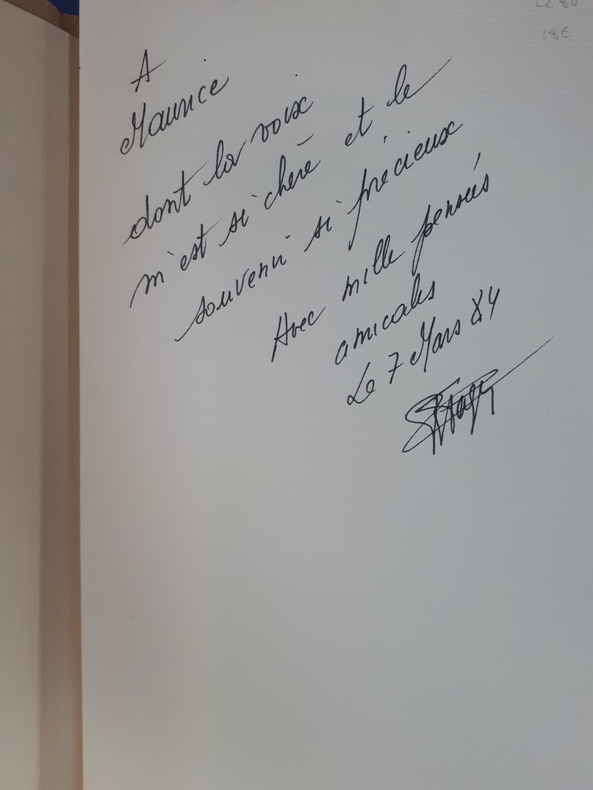 18€
A
Maurice
dont la voix
m'est si chère et le
souvenir si précieux
Avec mille pensées
amicales
Le 7 Mars 84